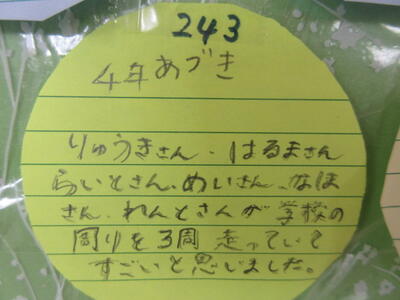 243
4年あづき
りゅうきさん、はるまさん
らいとさん、めいさん、なほ
さん、れんとさんが学校の
周りを3周走っていて
すごいと思いました。